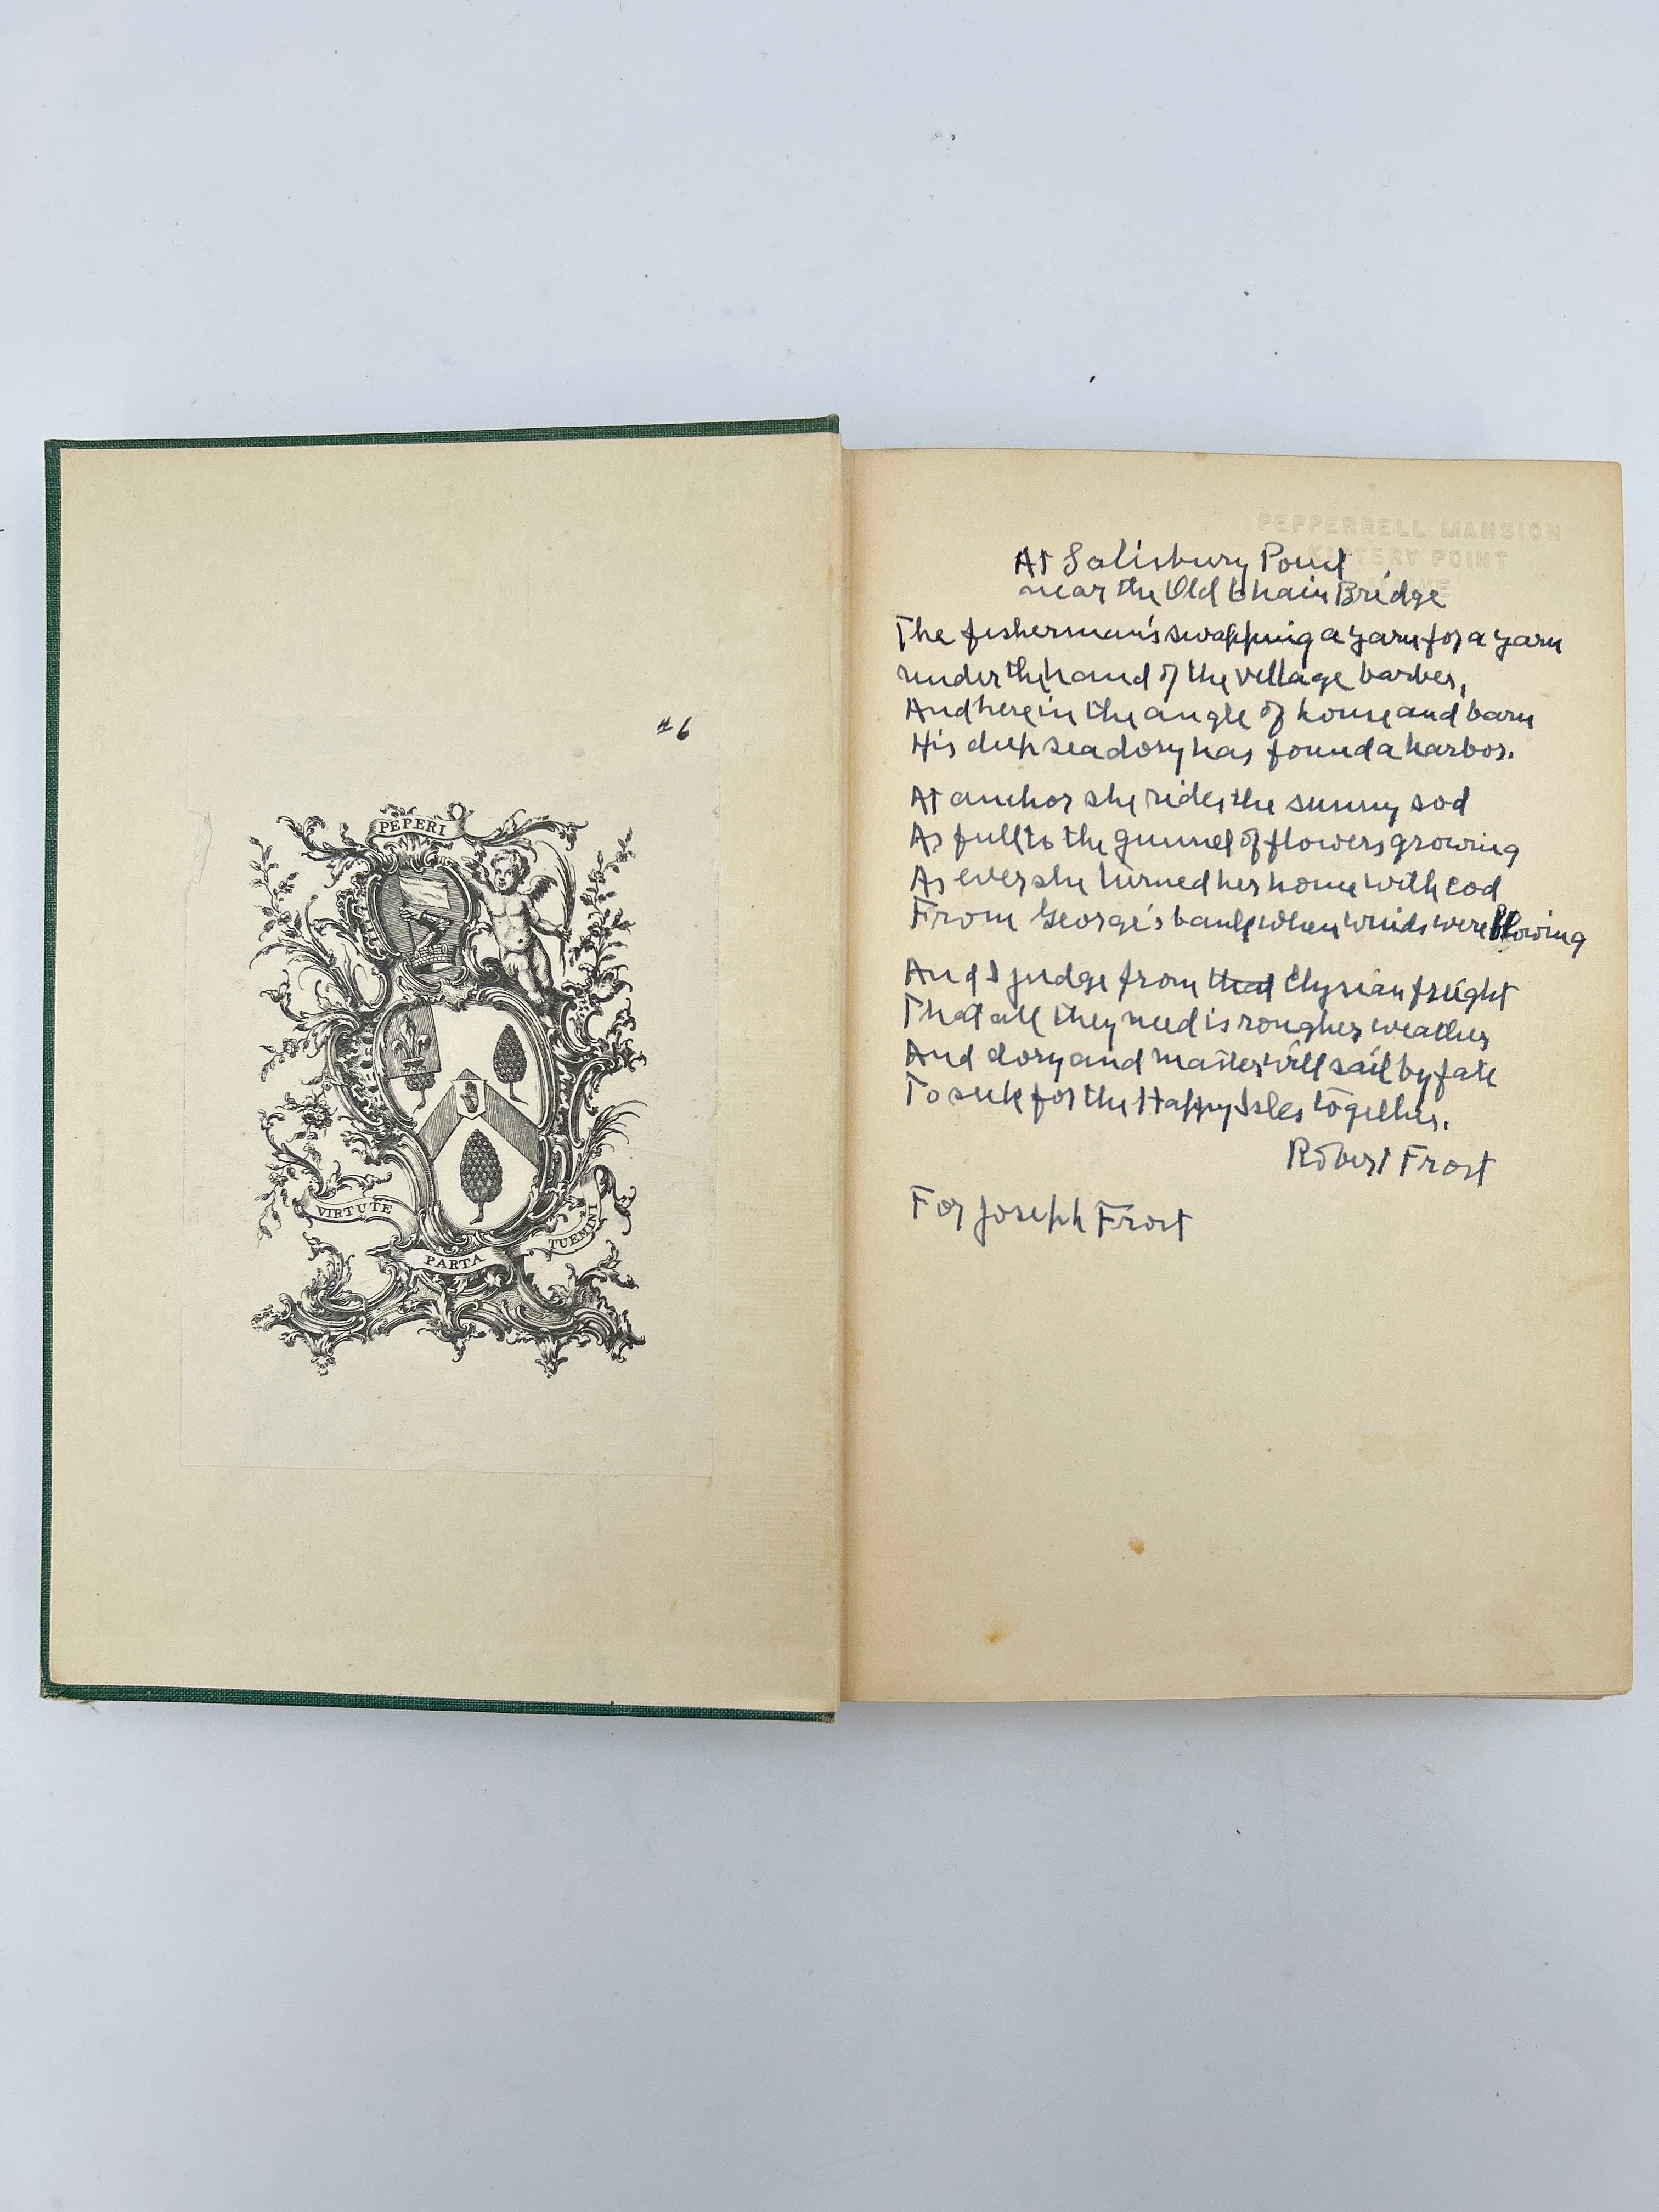 #6
PEPERI
VIRTUTE
PARTA
TUEMINI
PEPPERRELL MANSION
KITTERY POINT
At Salisbury Point
near the Old Chain Bridge
The fisherman's swapping a yarn for a yarn
under the hand of the village barber,
And here in the angle of house and barn
His deep sea dory has found a harbor.
At anchor she rides the sunny sod
As full to the gunnel of flowers growing
As ever she turned her home with cod
From George's bank when winds were blowing
And I judge from that Elysian freight
That all they need is rougher weather
And dory and master will sail by fate
To seek for the Happy Isles together.
Robert Frost
For Joseph Frost